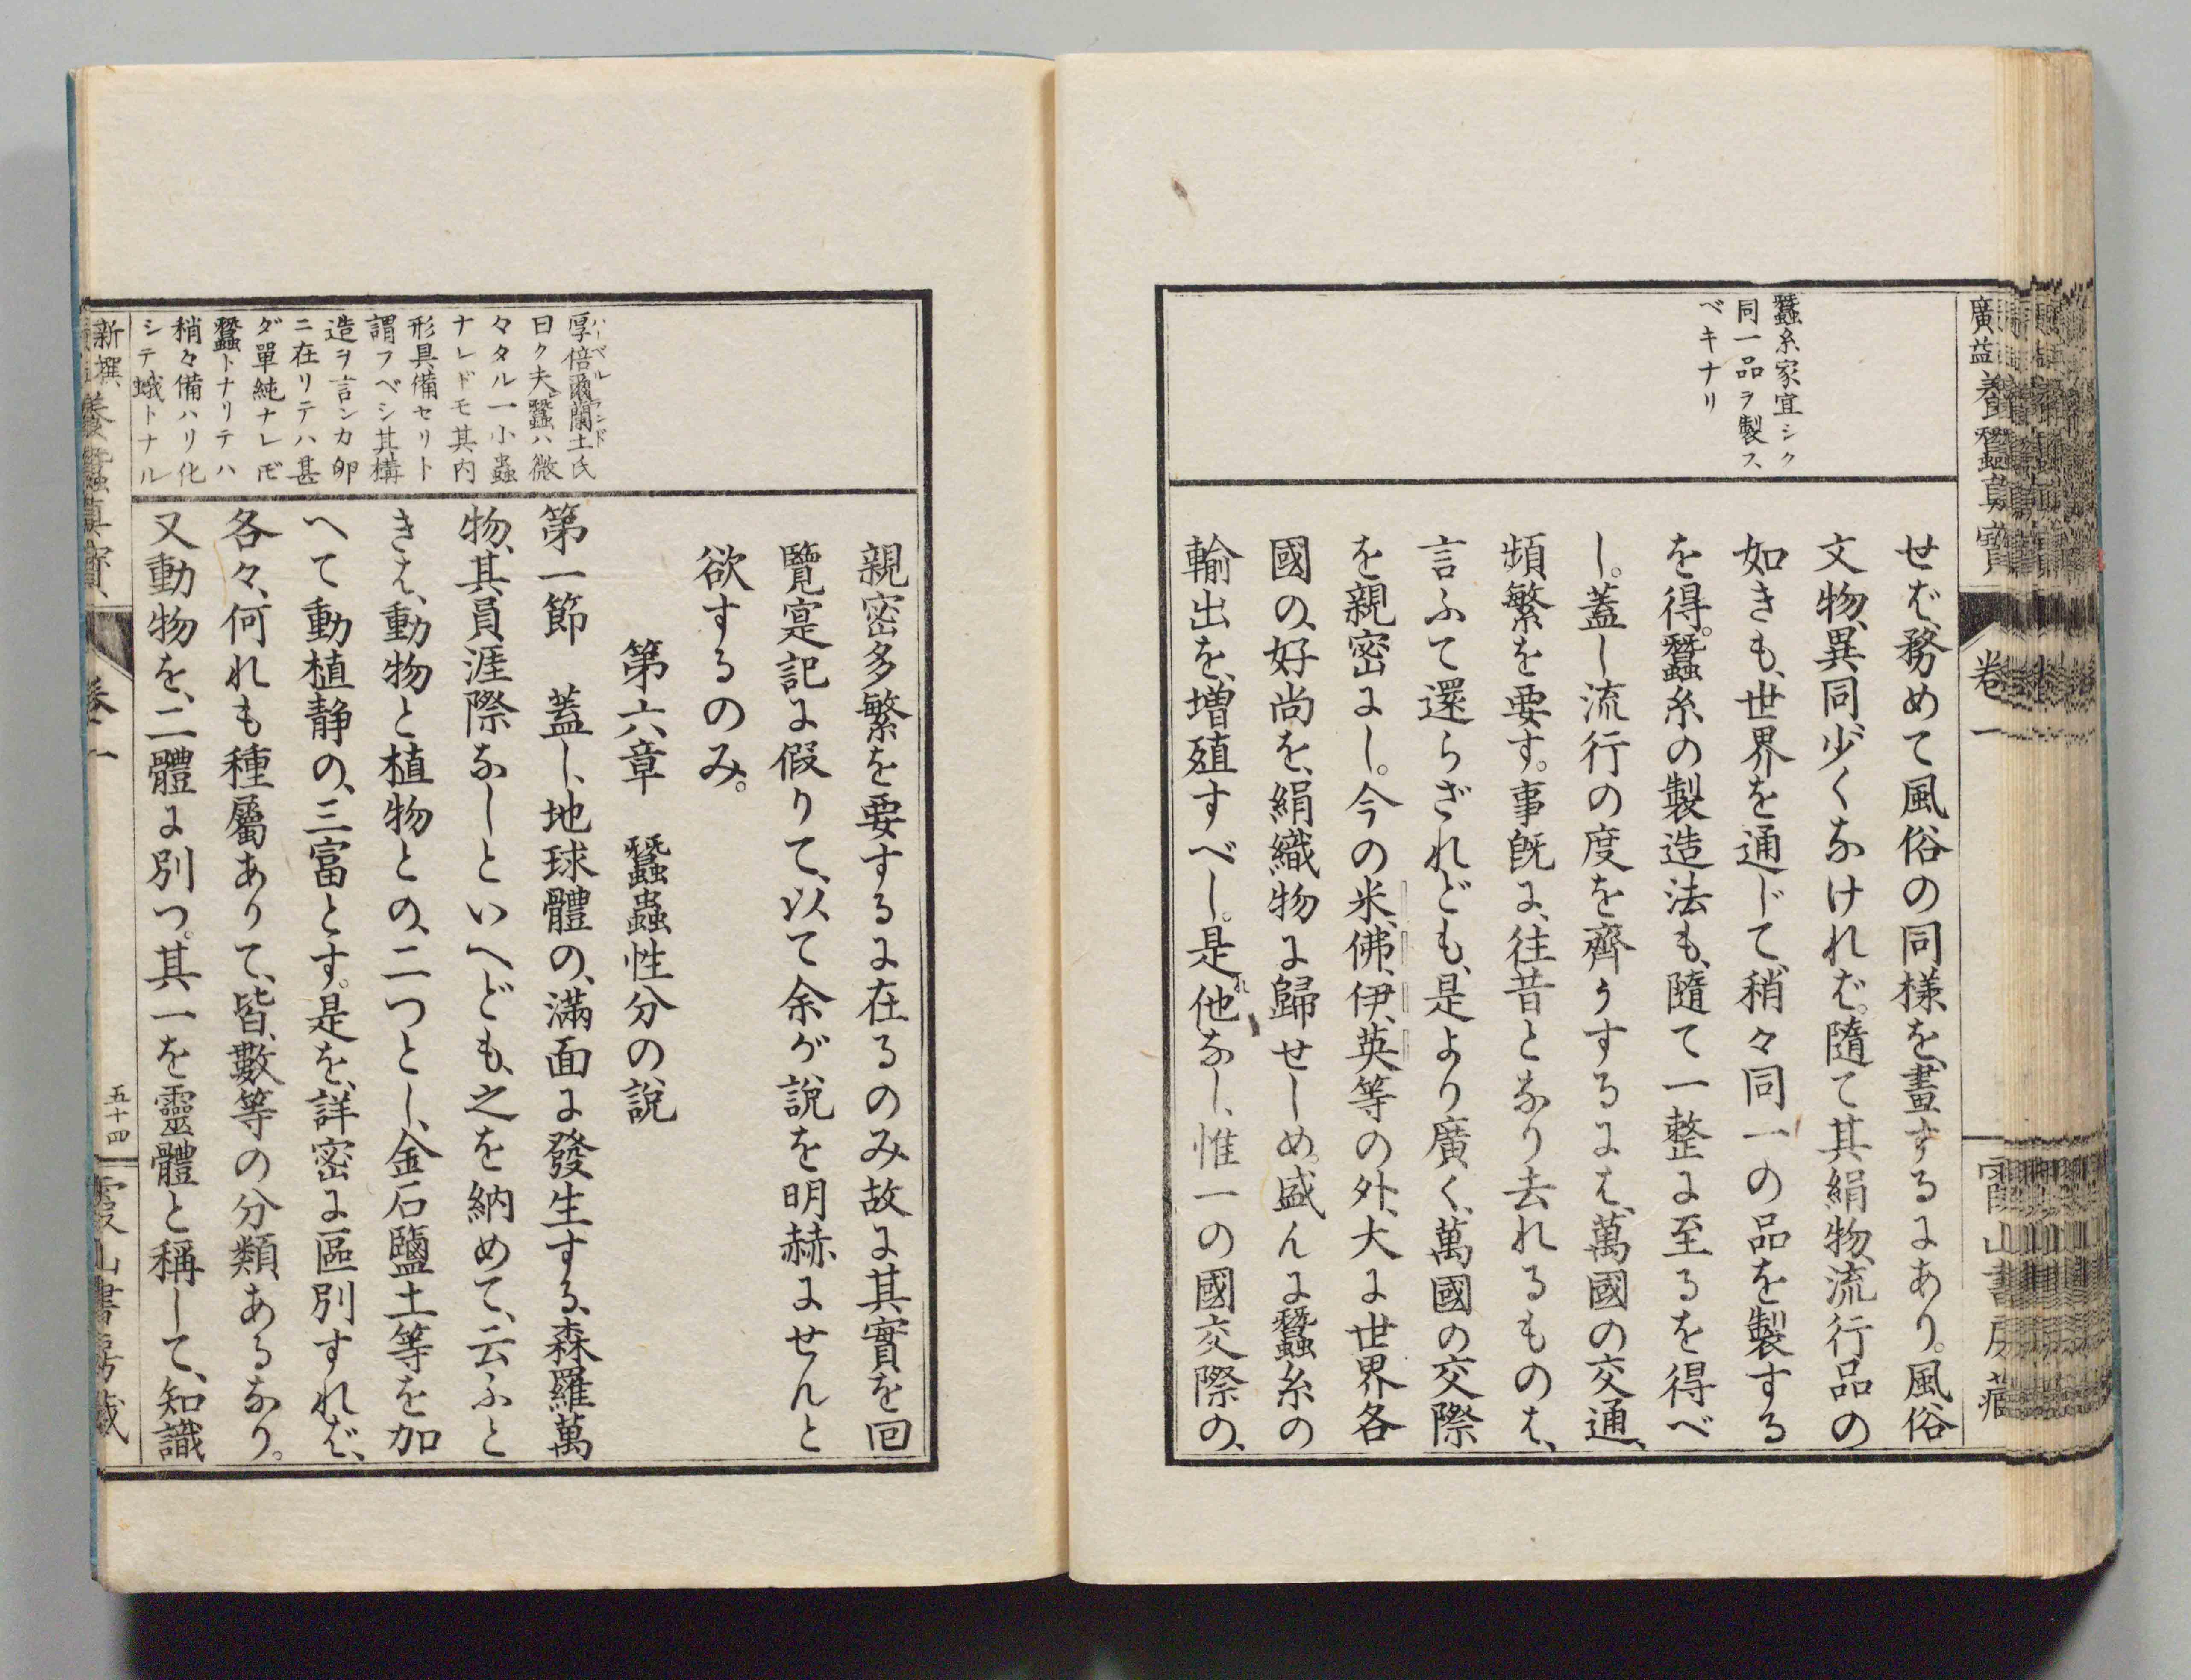 廣益養蠶眞寶
卷一
霞山書房藏
蠶糸家宜シク
同一品ヲ製ス
ベキナリ
せば、務めて風俗の同様を、畫するにあり。風俗
文物、異同、少くなけれバ。隨て其絹物、流行品の
如きも、世界を通じて、稍々同一の品を製する
を得。蠶糸の製造法も、隨て一整に至るを得べ
し。蓋し流行の度を齊うするにハ、萬國の交通、
頻繁を要す。事既に、往昔となり去れるものハ、
言ふて還らざれども、是より廣く、萬國の交際
を親密にし。今の米、佛、伊、英等の外、大に世界各
國の、好尚を、絹織物に歸せしめ。盛んに蠶糸の
輸出を、増殖すべし。是れ他なし、惟一の國交際の、
親密多繁を要するに在るのみ故に其實を回
覽寔記に假りて、以て余が説を明赫にせんと
欲するのみ。
第六章　蠶蟲性分の説
第一節　蓋し、地球體の、滿面に發生する、森羅萬
物、其員涯際なしといへども、之を納めて、云ふと
きハ、動物と植物との、二つとし、金石鹽土等を加
へて動植静の、三富とす。是を、詳密に區別すれバ、
各々、何れも種屬ありて、皆、數等の分類あるなり。
又動物を、二體に別つ。其一を靈體と稱して、知識
厚倍爾蘭土氏
ハーベルランド
曰ク夫レ蠶ハ微
々タル一小蟲
ナレドモ其内
形具備セリト
謂フベシ其構
造ヲ言ンカ卵
ニ在リテハ甚
ダ單純ナレ𪜈
蠶トナリテハ
稍々備ハリ化
シテ蛾トナル
新撰養蠶眞寶
卷一
五十四
霞山書房藏